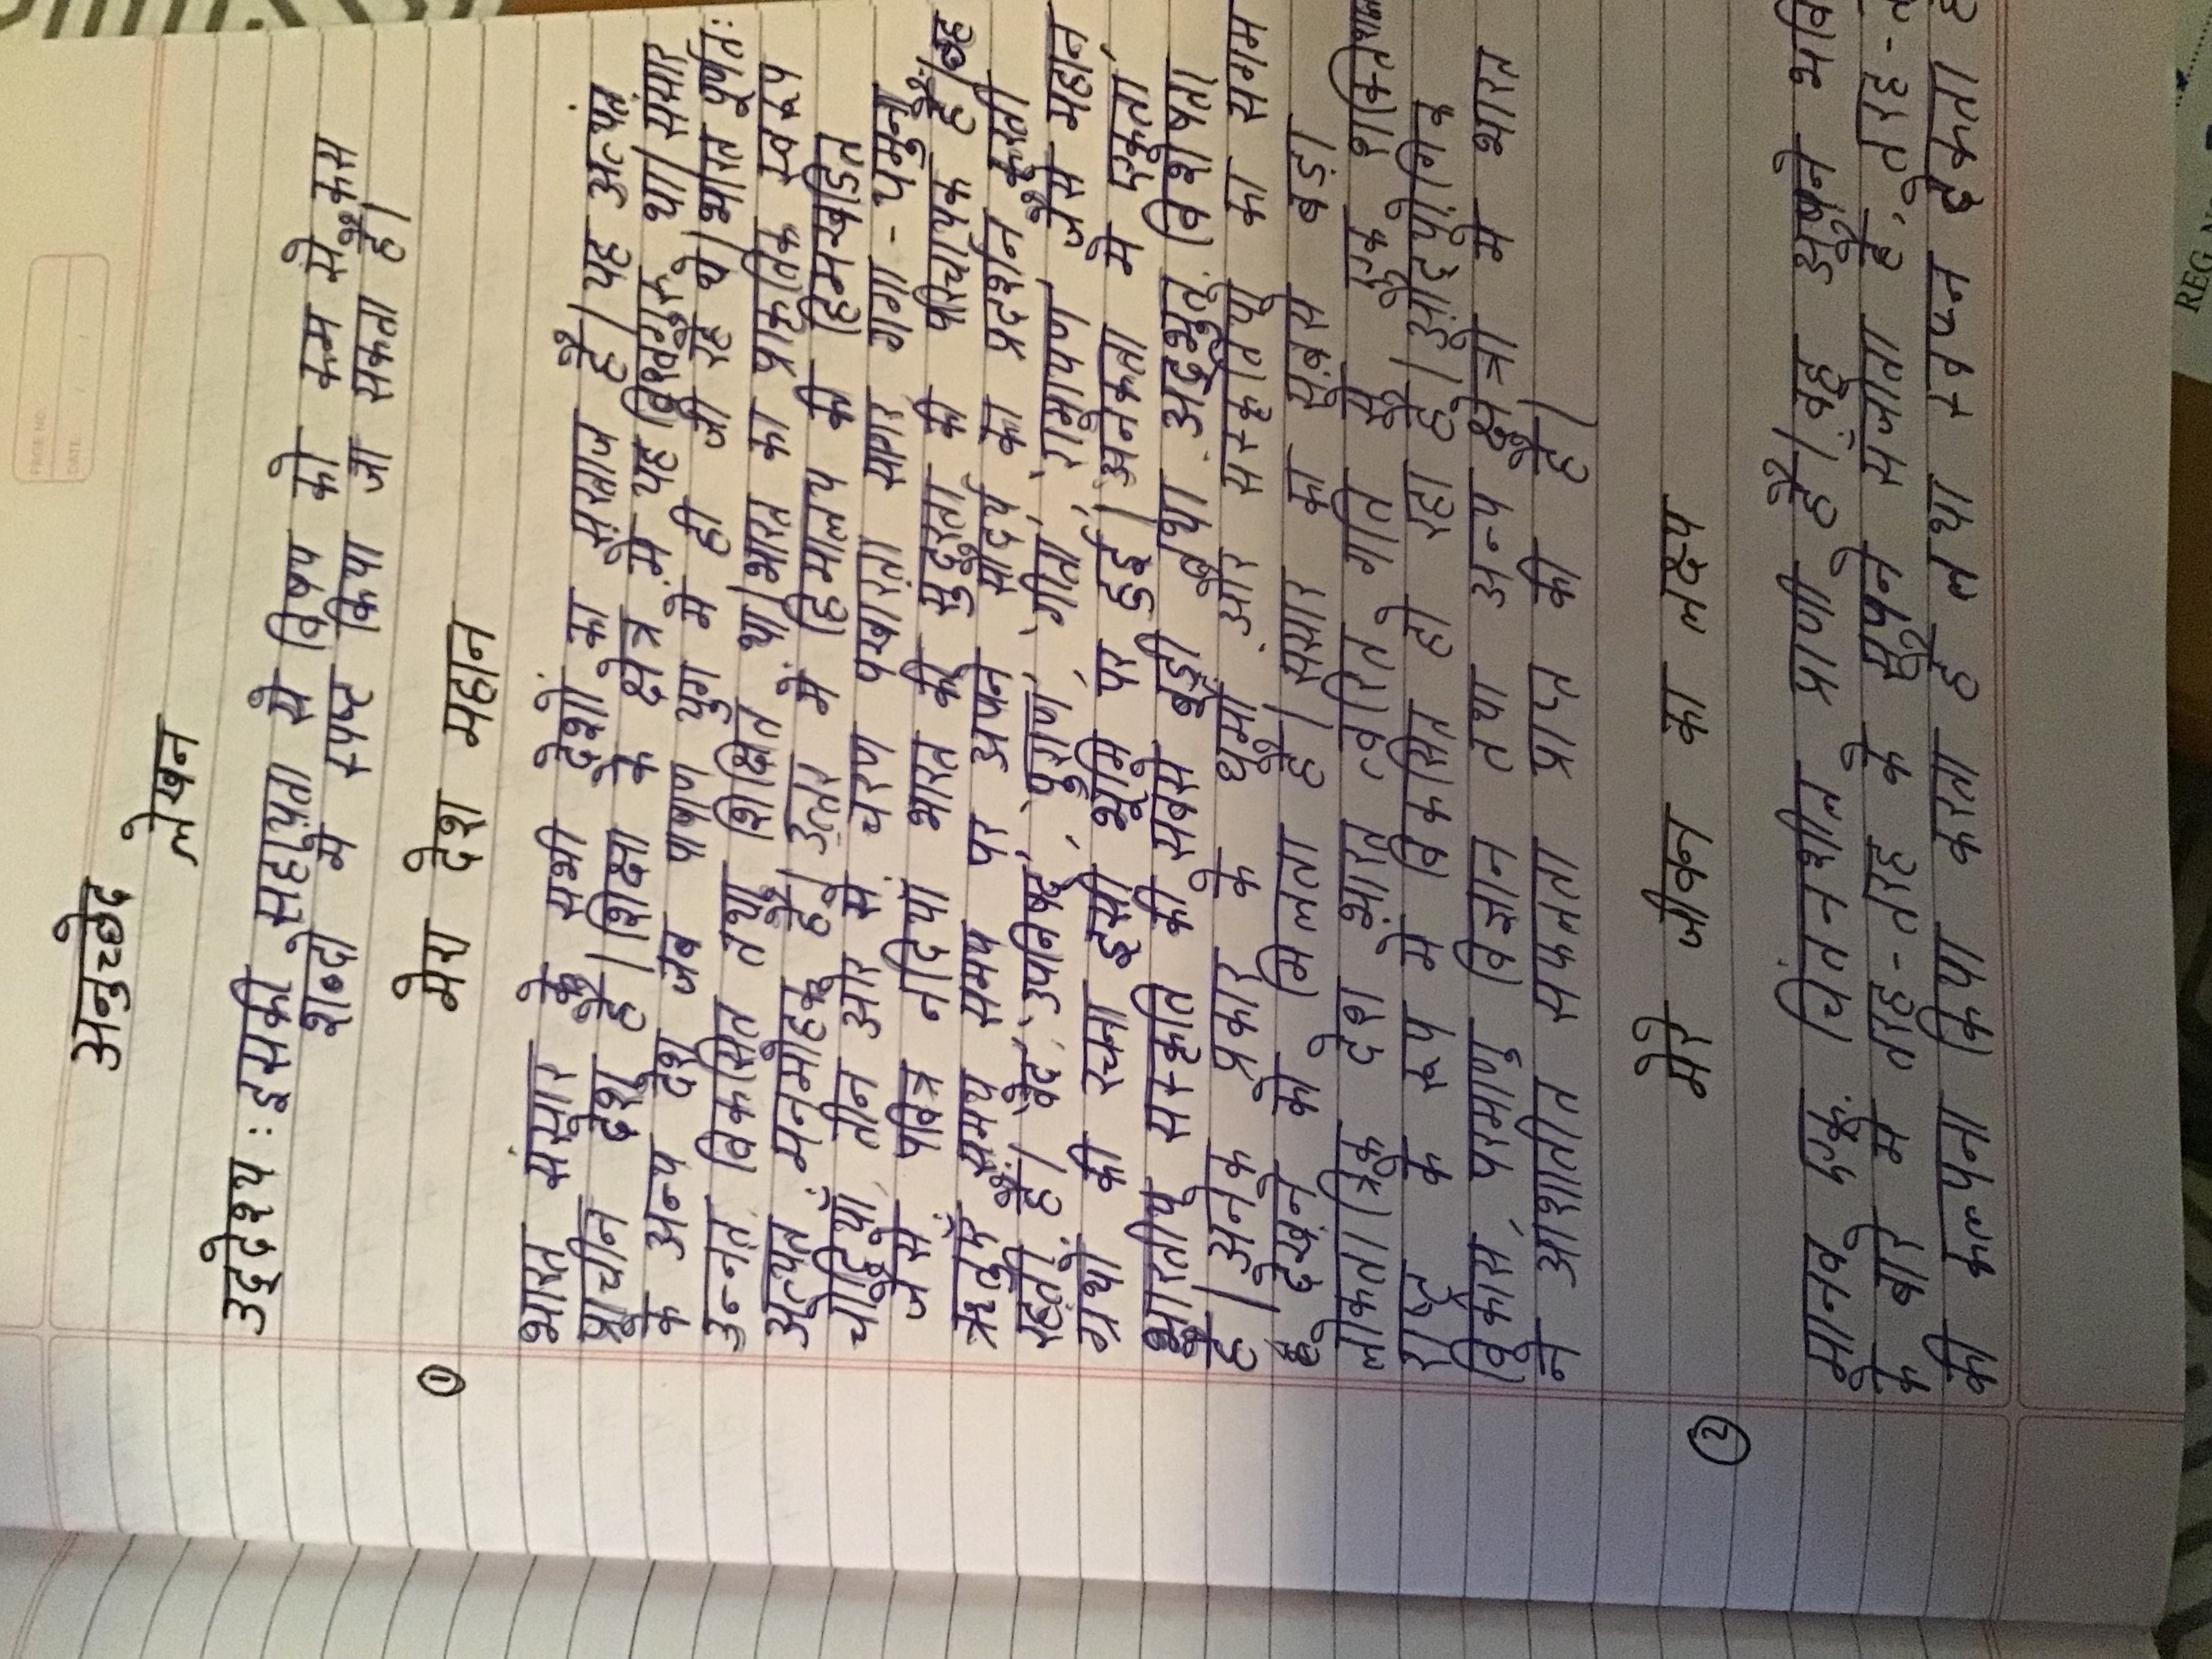 PAGE NO.
DATE / /
अनुच्छेद
लेखन
उद्देश्य : इसकी सहायता से विषय को कम से कम
शब्दों में स्पष्ट किया जा सकता है।
① मेरा देश महान
भारत संसार के सभी देशों का सरताज है। यह अत्यंत
प्राचीन देश है। शिक्षा के क्षेत्र में यह विश्वगुरु था। संसार
के अन्य देश जब पाषाण युग में ही जी रहे थे। भारत पूर्णत:
उन्नत, विकसित तथा शिक्षित था। भारत का प्राकृतिक स्वरूप
अत्यंत मनमोहक है। उत्तर में हिमालय की हिमखंडित
चोटियाँ, तीन ओर से चरण पखारता सागर, गंगा - यमुना
जैसे पवित्र नदियाँ भारत की सुंदरता की परिचायक हैं। छह
ऋतुएँ समय समय पर अपने सौंदर्य का प्रदर्शन करती
रहती हैं। 'वेद', 'उपनिषद्', 'पुराण', 'गीता', 'रामायण' जैसे महान
ग्रंथों की रचना इसी भूमि पर हुई। 'अनेकता में एकता'
भारतीय संस्कृति की सबसे बड़ी तथा अद्भुत विशेषता
है। अनेक प्रकार के धर्मों और संस्कृतियों का संगम
देखने को मिलता है। संसार का सबसे बड़ा
लोकतांत्रिक देश भारत त्वरित गति से एक
राष्ट्र के रूप में विकसित हो रहा है। औद्योगिक
विकास, परमाणु विज्ञान तथा अन्य क्षेत्रों में भारत
ने आशातीत सफलता प्राप्त की है।
② मेरे जीवन का लक्ष्य
मानव एक चिंतनशील प्राणी है। वह अपने भवि
के बारे में तरह-तरह के सपने सँजोता है, तरह-
की कल्पना किया करता है तथा स्वप्न देकता
REG. N